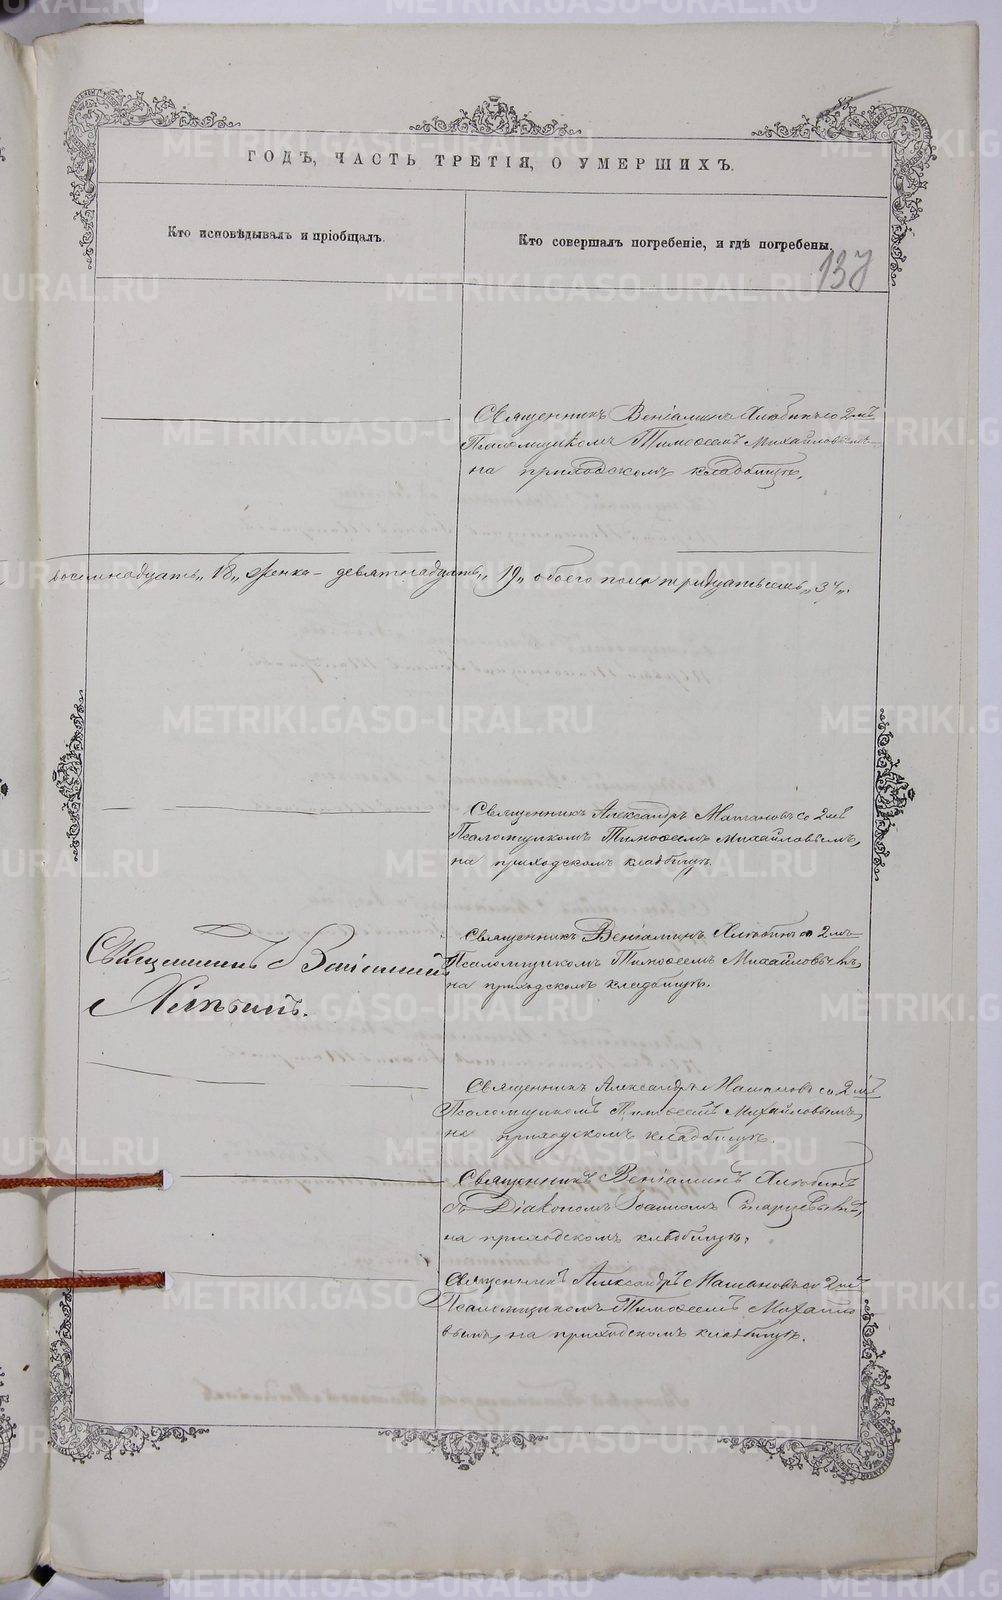 ГОДЪ, ЧАСТЬ ТРЕТІЯ, О УМЕРШИХЪ.
Кто исповѣдывалъ и пріобщалъ.
Кто совершалъ погребеніе, и гдѣ погребены.
137
Священникъ Веніаминъ Хлюбинъ со 2мъ
Псаломщикомъ Тимоѳеемъ Михайловымъ
на приходскомъ кладбищѣ.
восемнадцать „18„ женска – девятнадцать „19„ обоего пола тридцать семь „37„.
Священникъ Александръ со 2мъ
Псаломщикомъ Тимоѳеемъ Михайловымъ,
на приходскомъ кладбищѣ.
Священникъ Веніаминъ
Хлюбинъ.
Священникъ Веніаминъ Хлюбинъ со 2мъ
Псаломщикомъ Тимоѳеемъ Михайловымъ,
на приходскомъ кладбищѣ.
Священникъ Александръ со 2мъ
Псаломщикомъ Тимоѳеемъ Михайловымъ,
на приходскомъ кладбищѣ.
Священникъ Веніаминъ Хлюбинъ
съ Діакономъ Іоанномъ
на приходскомъ кладбищѣ.
Священникъ Александръ со 2мъ
Псаломщикомъ Тимоѳеемъ Михайло
вымъ, на приходскомъ кладбищѣ.
METRIKI.GASO-URAL.RU